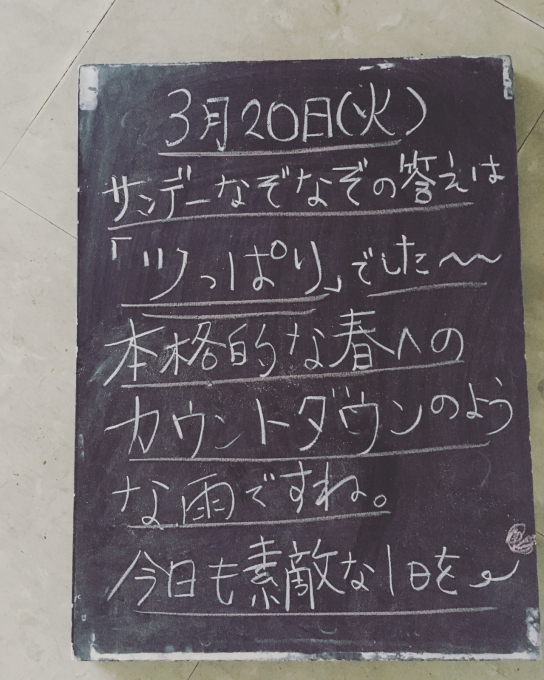 3月20日(火)
サンデーなぞなぞの答えは
「ツっぱり」でした〜〜
本格的な春への
カウントダウンのよう
な雨ですね。
今日も素敵な1日を